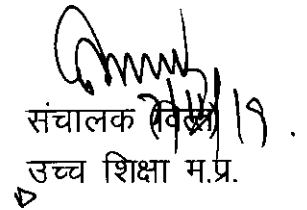 संचालक (वित्त)
उच्च शिक्षा म.प्र.